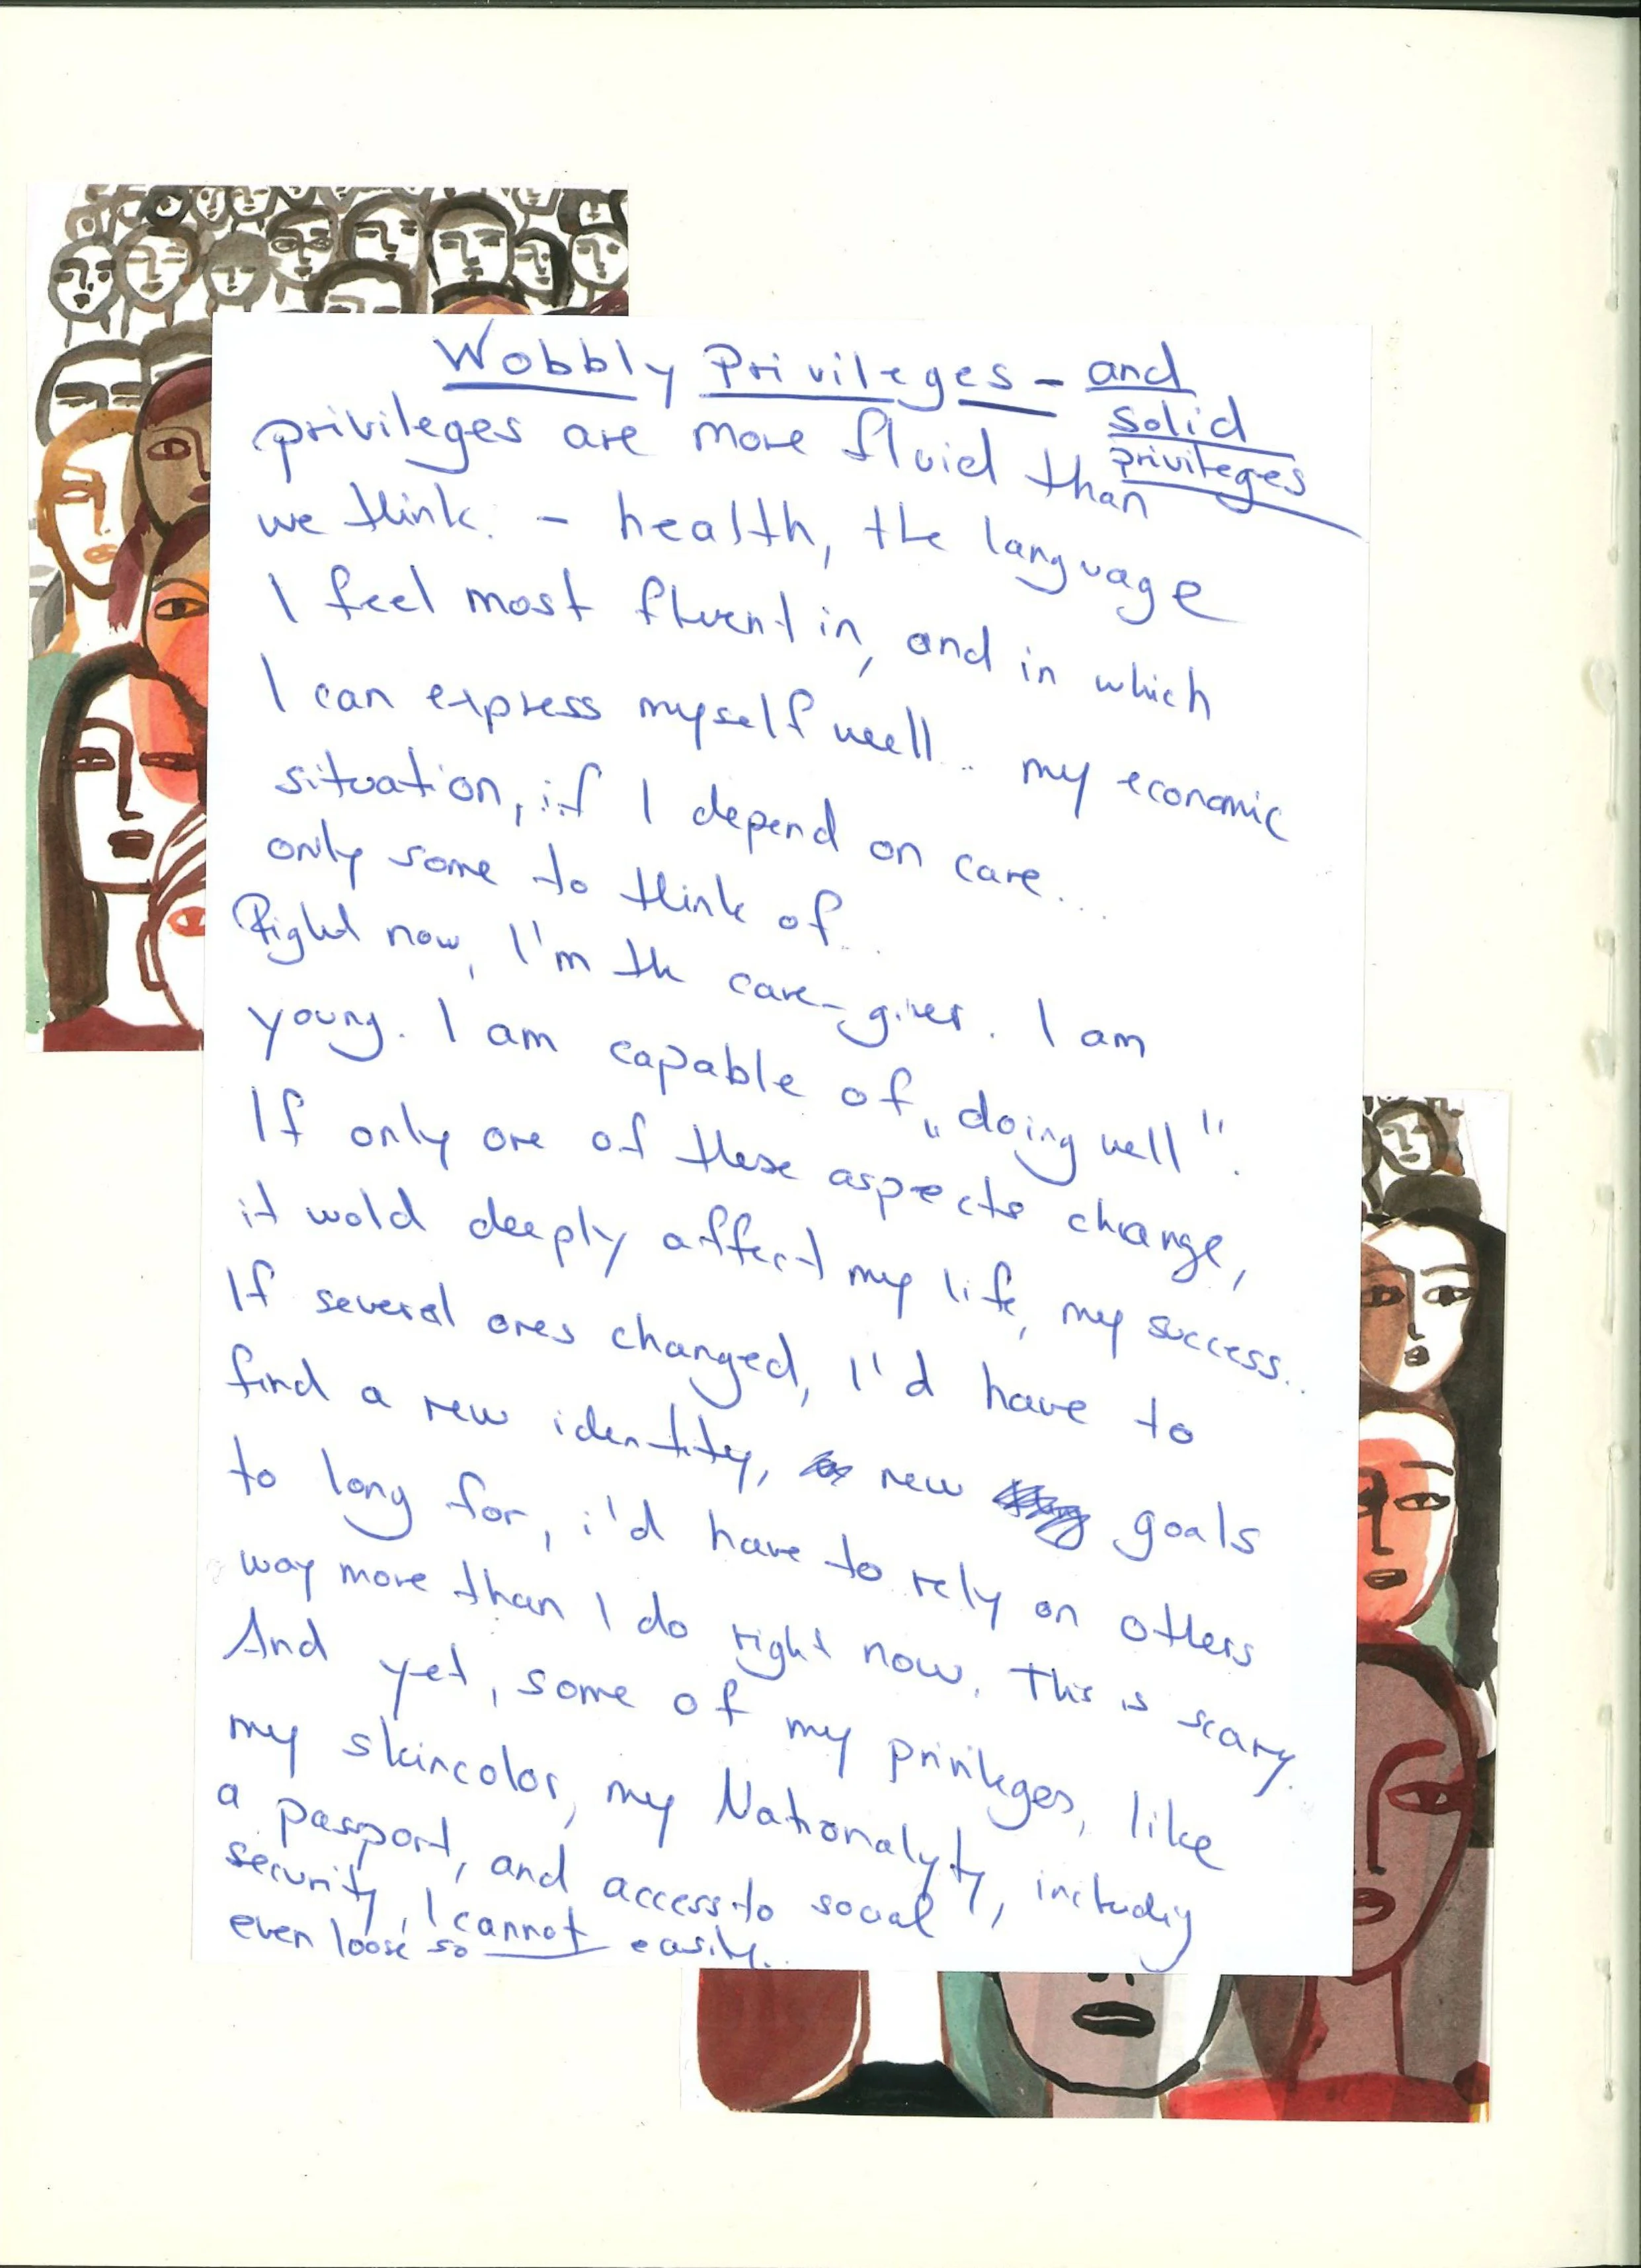 Wobbly Privileges - and
solid
privileges
privileges are more fluid than
we think. - health, the language
I feel most fluent in, and in which
I can express myself well.. my economic
situation, if I depend on care...
only some to think of..
Right now, I'm the care-giver. I am
young. I am capable of „doing well".
If only one of these aspects change,
it wold deeply affect my life, my success..
If several ones changed, I'd have to
find a new identity, new goals
to long for, i'd have to rely on others
way more than I do right now. This is scary.
And yet, some of my privileges, like
my skincolor, my Nationalyty, including
a passport, and access to social
security, I cannot
even loose so easily..